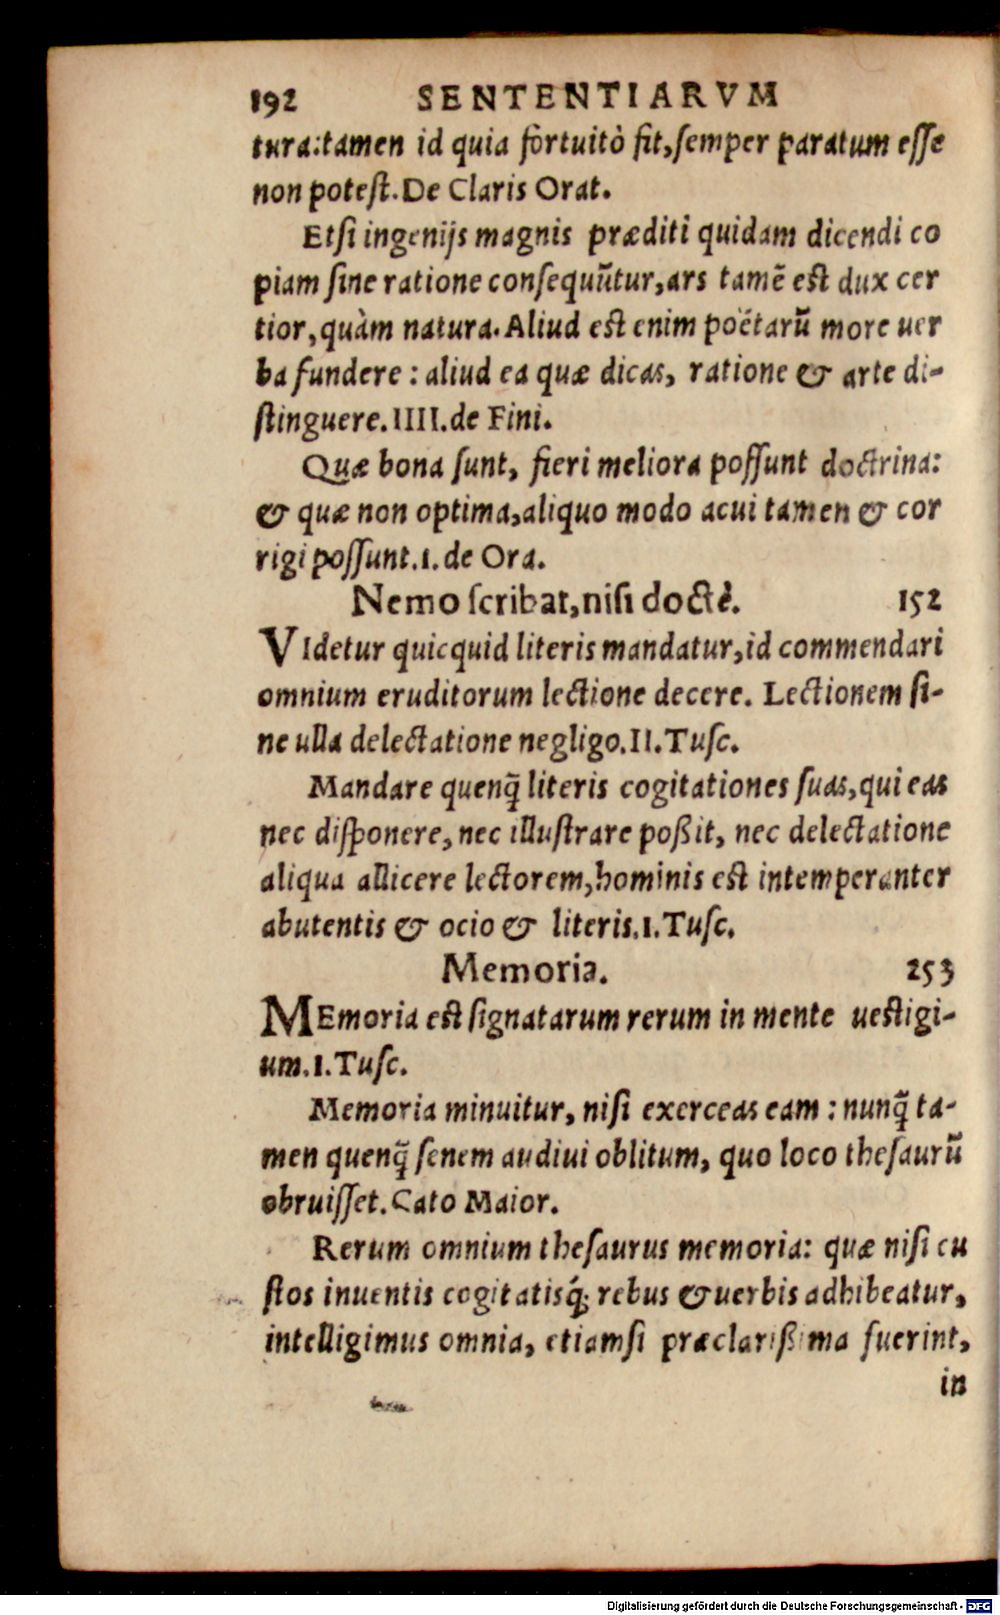 192 SENTENTIARVM
tura:tamen id quia fortuitò fit,semper paratum esse
non potest.De Claris Orat.
Etsi ingenijs magnis præditi quidam dicendi co
piam sine ratione consequūtur,ars tamē est dux cer
tior,quàm natura.Aliud est enim poëtarū more uer
ba fundere : aliud ea quæ dicas, ratione & arte di-
stinguere.IIII.de Fini.
Quæ bona sunt, fieri meliora possunt doctrina:
& quæ non optima,aliquo modo acui tamen & cor
rigi possunt.1.de Ora.
Nemo scribat,nisi doctè. 152
VIdetur quicquid literis mandatur,id commendari
omnium eruditorum lectione decere. Lectionem si-
ne ulla delectatione negligo.II.Tusc.
Mandare quenq̃ literis cogitationes suas,qui eas
nec disponere, nec illustrare poßit, nec delectatione
aliqua allicere lectorem,hominis est intemperanter
abutentis & ocio & literis.1.Tusc.
Memoria. 253
MEmoria est signatarum rerum in mente uestigi-
um.1.Tusc.
Memoria minuitur, nisi exerceas eam : nunq̃ ta-
men quenq̃ senem audiui oblitum, quo loco thesaurū
obruisset.Cato Maior.
Rerum omnium thesaurus memoria: quæ nisi cu
stos inuentis cogitatisq́; rebus & uerbis adhibeatur,
intelligimus omnia, etiamsi præclarißima fuerint,
in
Digitalisierung gefördert durch die Deutsche Forschungsgemeinschaft - DFG